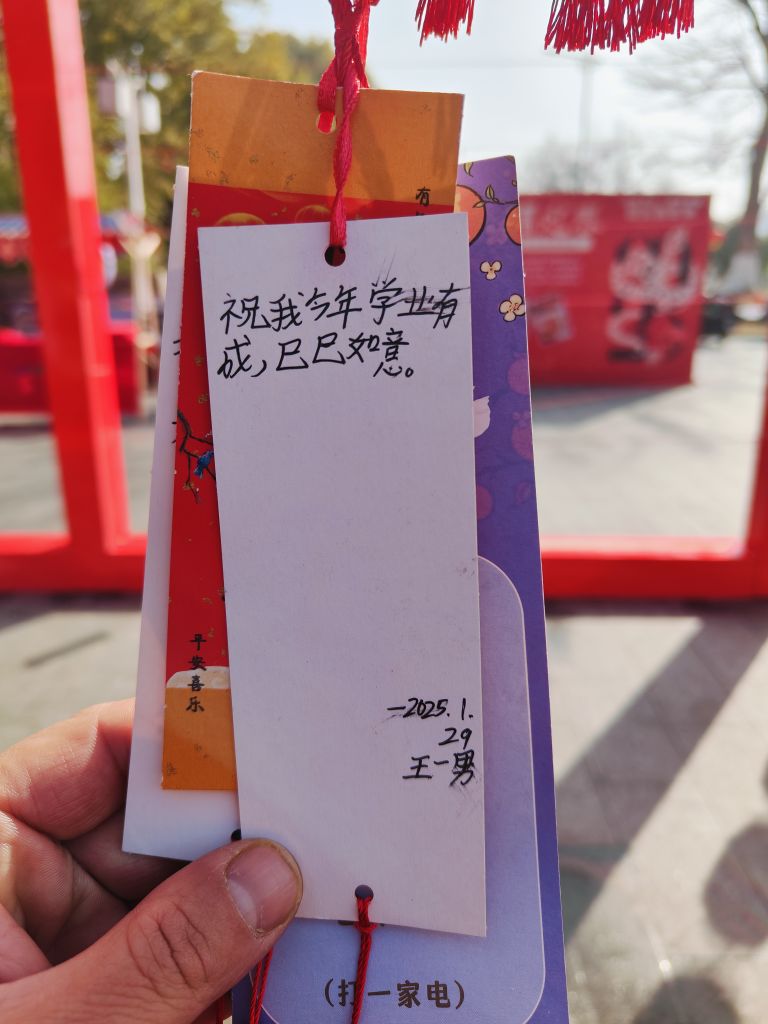 有
祝我今年学业有
成,巳巳如意。
平安喜乐
-2025.1.
29
王一男
(打一家电)